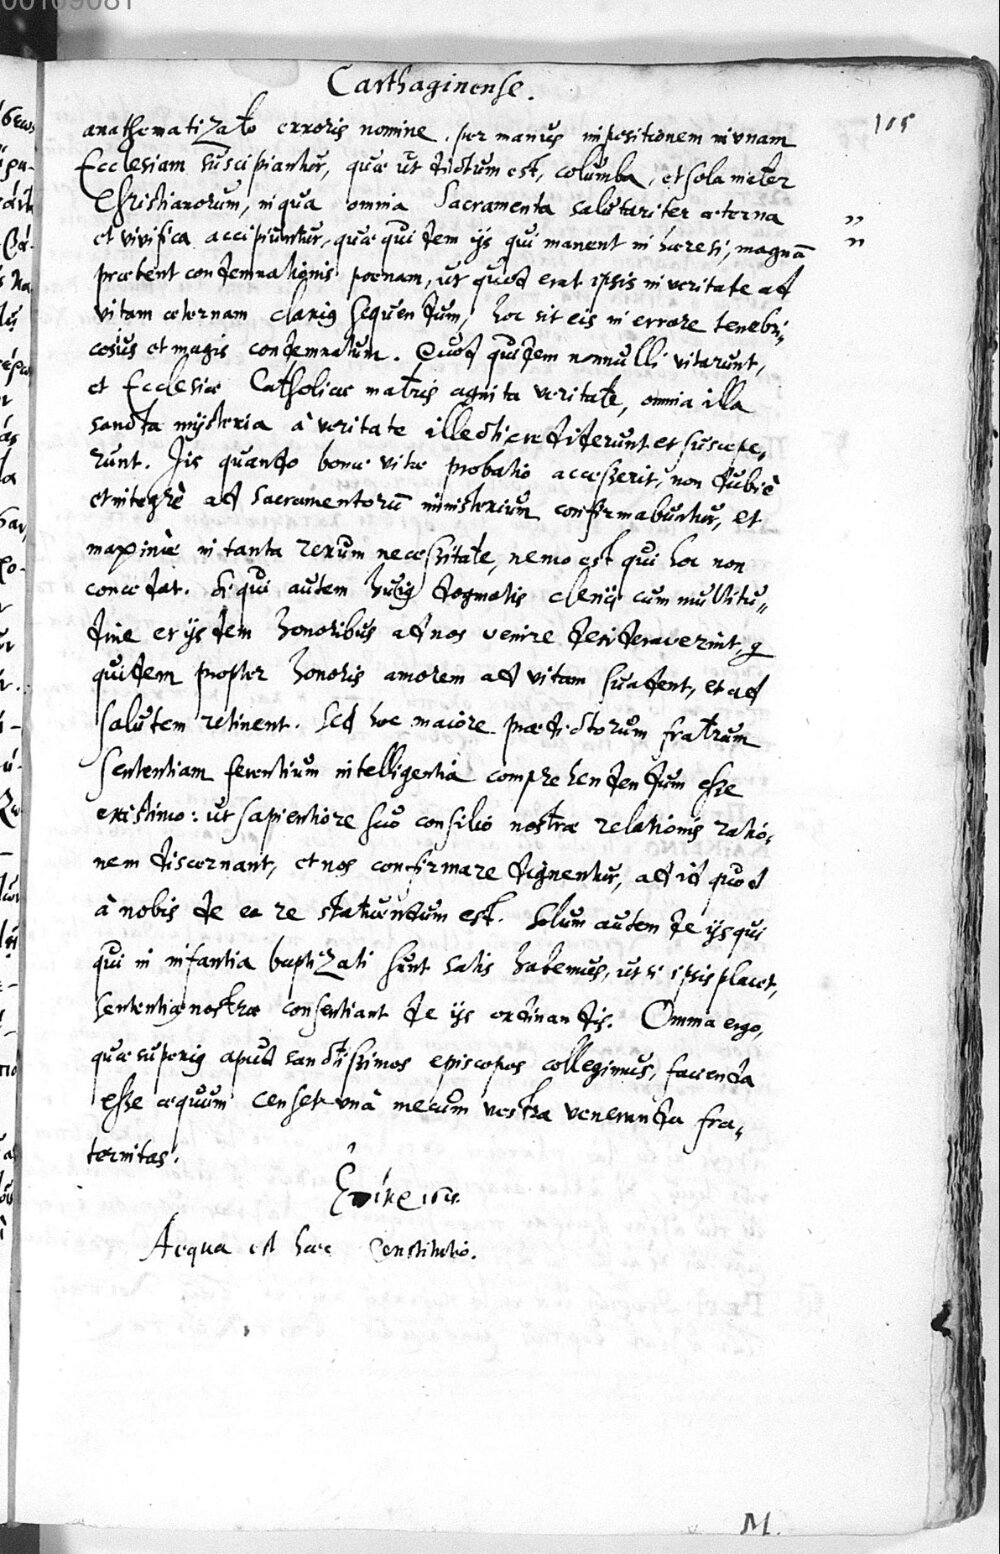 00169081
Carthaginense.
105
anathematizato erroris nomine, per manus impositionem in unam
Ecclesiam suscipiantur, quæ ut dictum est, columba, et sola mater
Christianorum, in qua omnia Sacramenta salutariter æterna
et vivifica accipiuntur, quæ quidem ijs qui manent in hæresi, magnā
præbent condemnationis poenam, ut quod erat ipsis in veritate ad
vitam æternam clarius sequendum, hoc sit eis in errore tenebri-
cosius et magis condemnatum. Quod quidem nonnulli vitarunt,
et Ecclesiæ Catholicæ matris agnita veritate, omnia illa
sancta mysteria à veritate illecti crediderunt et suscepe-
runt. Jis quando bonæ vitæ probatio accesserit, non dubiè
et integrè ad sacramentorū ministerium confirmabuntur, et
maximè in tanta rerum necessitate, nemo est qui hoc non
concedat. Si qui autem huius dogmatis clerici cum multitu-
dine et ijsdem honoribus ad nos venire desideraverint, q
quidem propter honoris amorem ad vitam suadent, et ad
salutem retinent. Sed hoc maiore prædictorum fratrum
sententiam ferentium intelligentia comprehendendum esse
existimo: ut sapientiore suo consilio nostræ relationis ratio-
nem discernant, et nos confirmare dignentur, ad id quod
à nobis de ea re statuendum est. Solum autem de ijs qui
qui in infantia baptizati sunt satis habemus, ut si ipsis placet,
sententiæ nostræ consentiant de ijs ordinandis. Omnia ergo,
quæ superius apud sanctissimos episcopos collegimus, facienda
esse æquum censet unà mecum vestra veneranda fra-
ternitas.
Aequa est hæc Constitutio.
M.